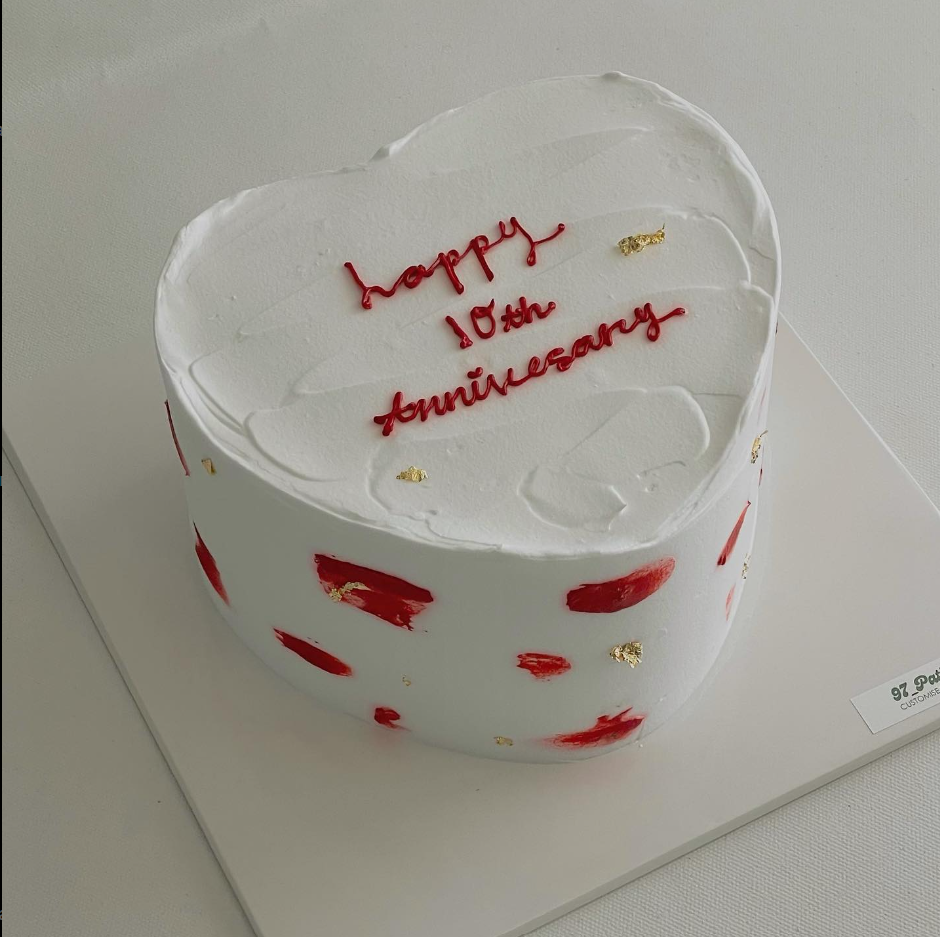 happy
10th
Annivesary
97_Pat
CUSTOMISE